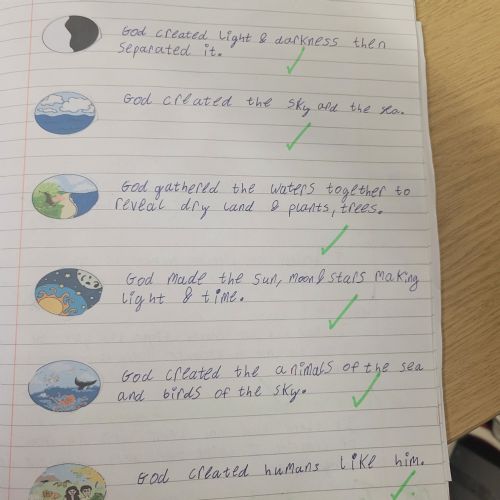 God created light & darkness then
separated it.
God created the sky and the sea.
God gathered the waters together to
reveal dry land & plants, trees.
God made the sun, moon & stars making
light & time.
God created the animals of the sea
and birds of the sky.
God created humans like him.